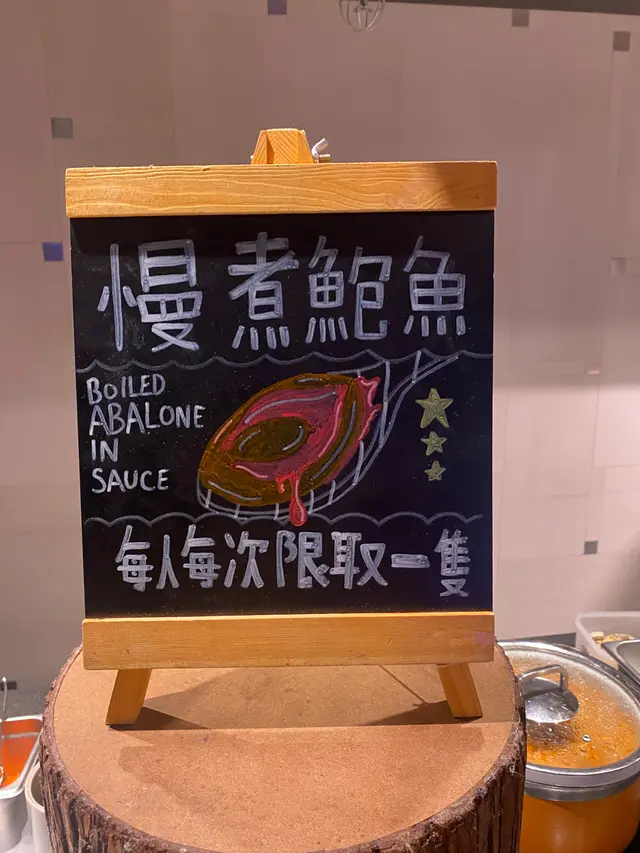 慢煮鮑魚
BOILED
ABALONE
IN
SAUCE
每人每次限取一隻